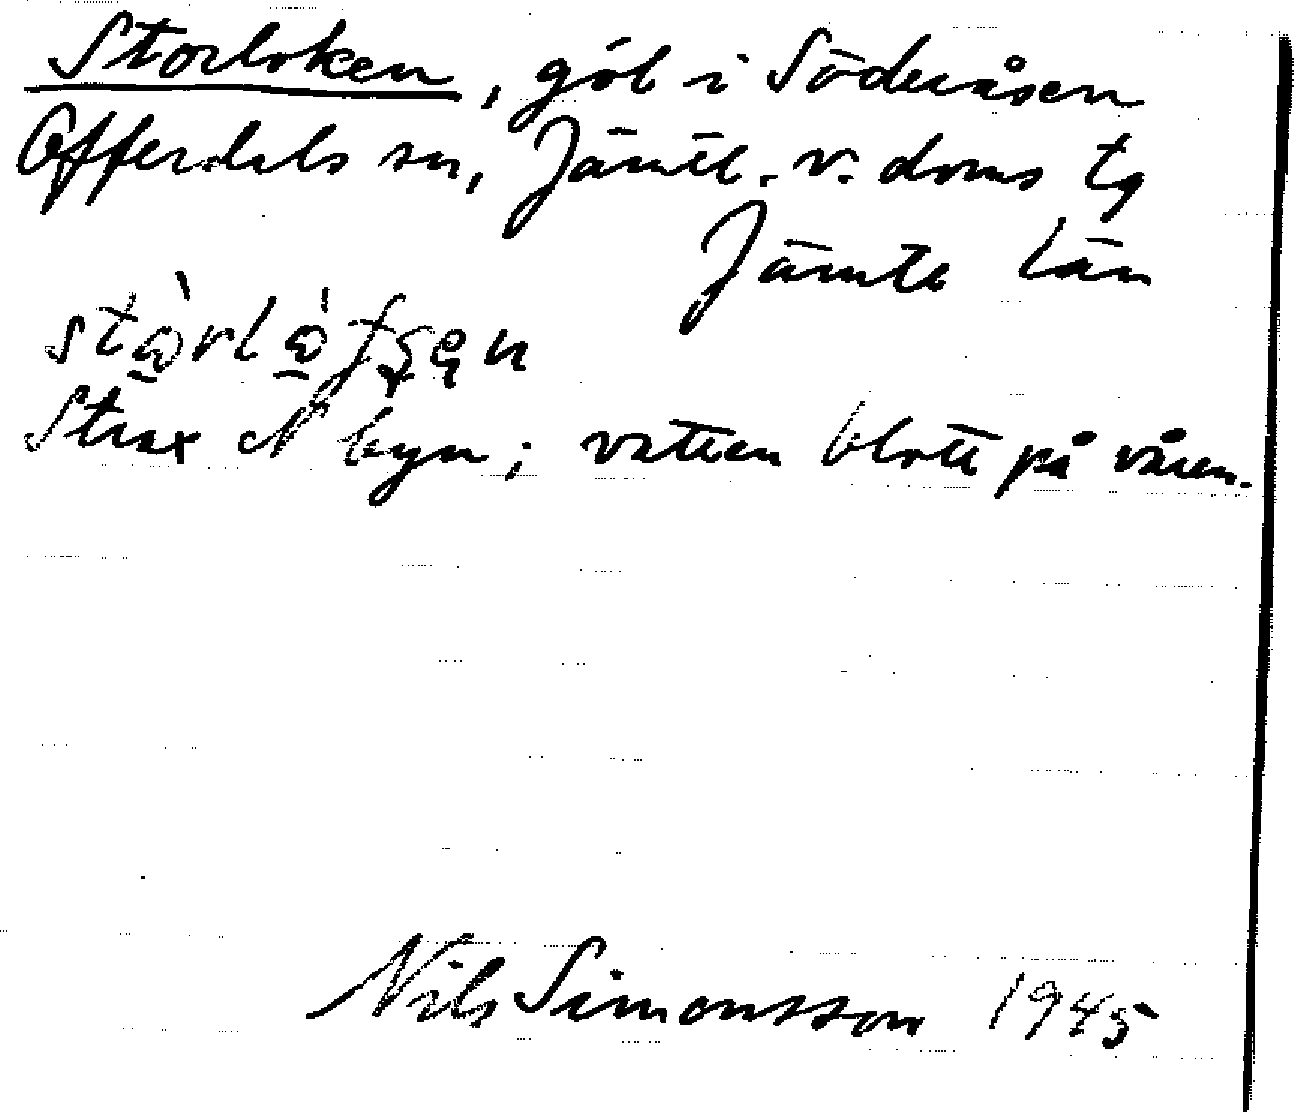 Storloken, göl i Söderåsen
Offerdals sn, Jämtl. v. doms tg
Jämtl län
Strax N byn; vatten blott på våren.
Nils Simonsson 1945